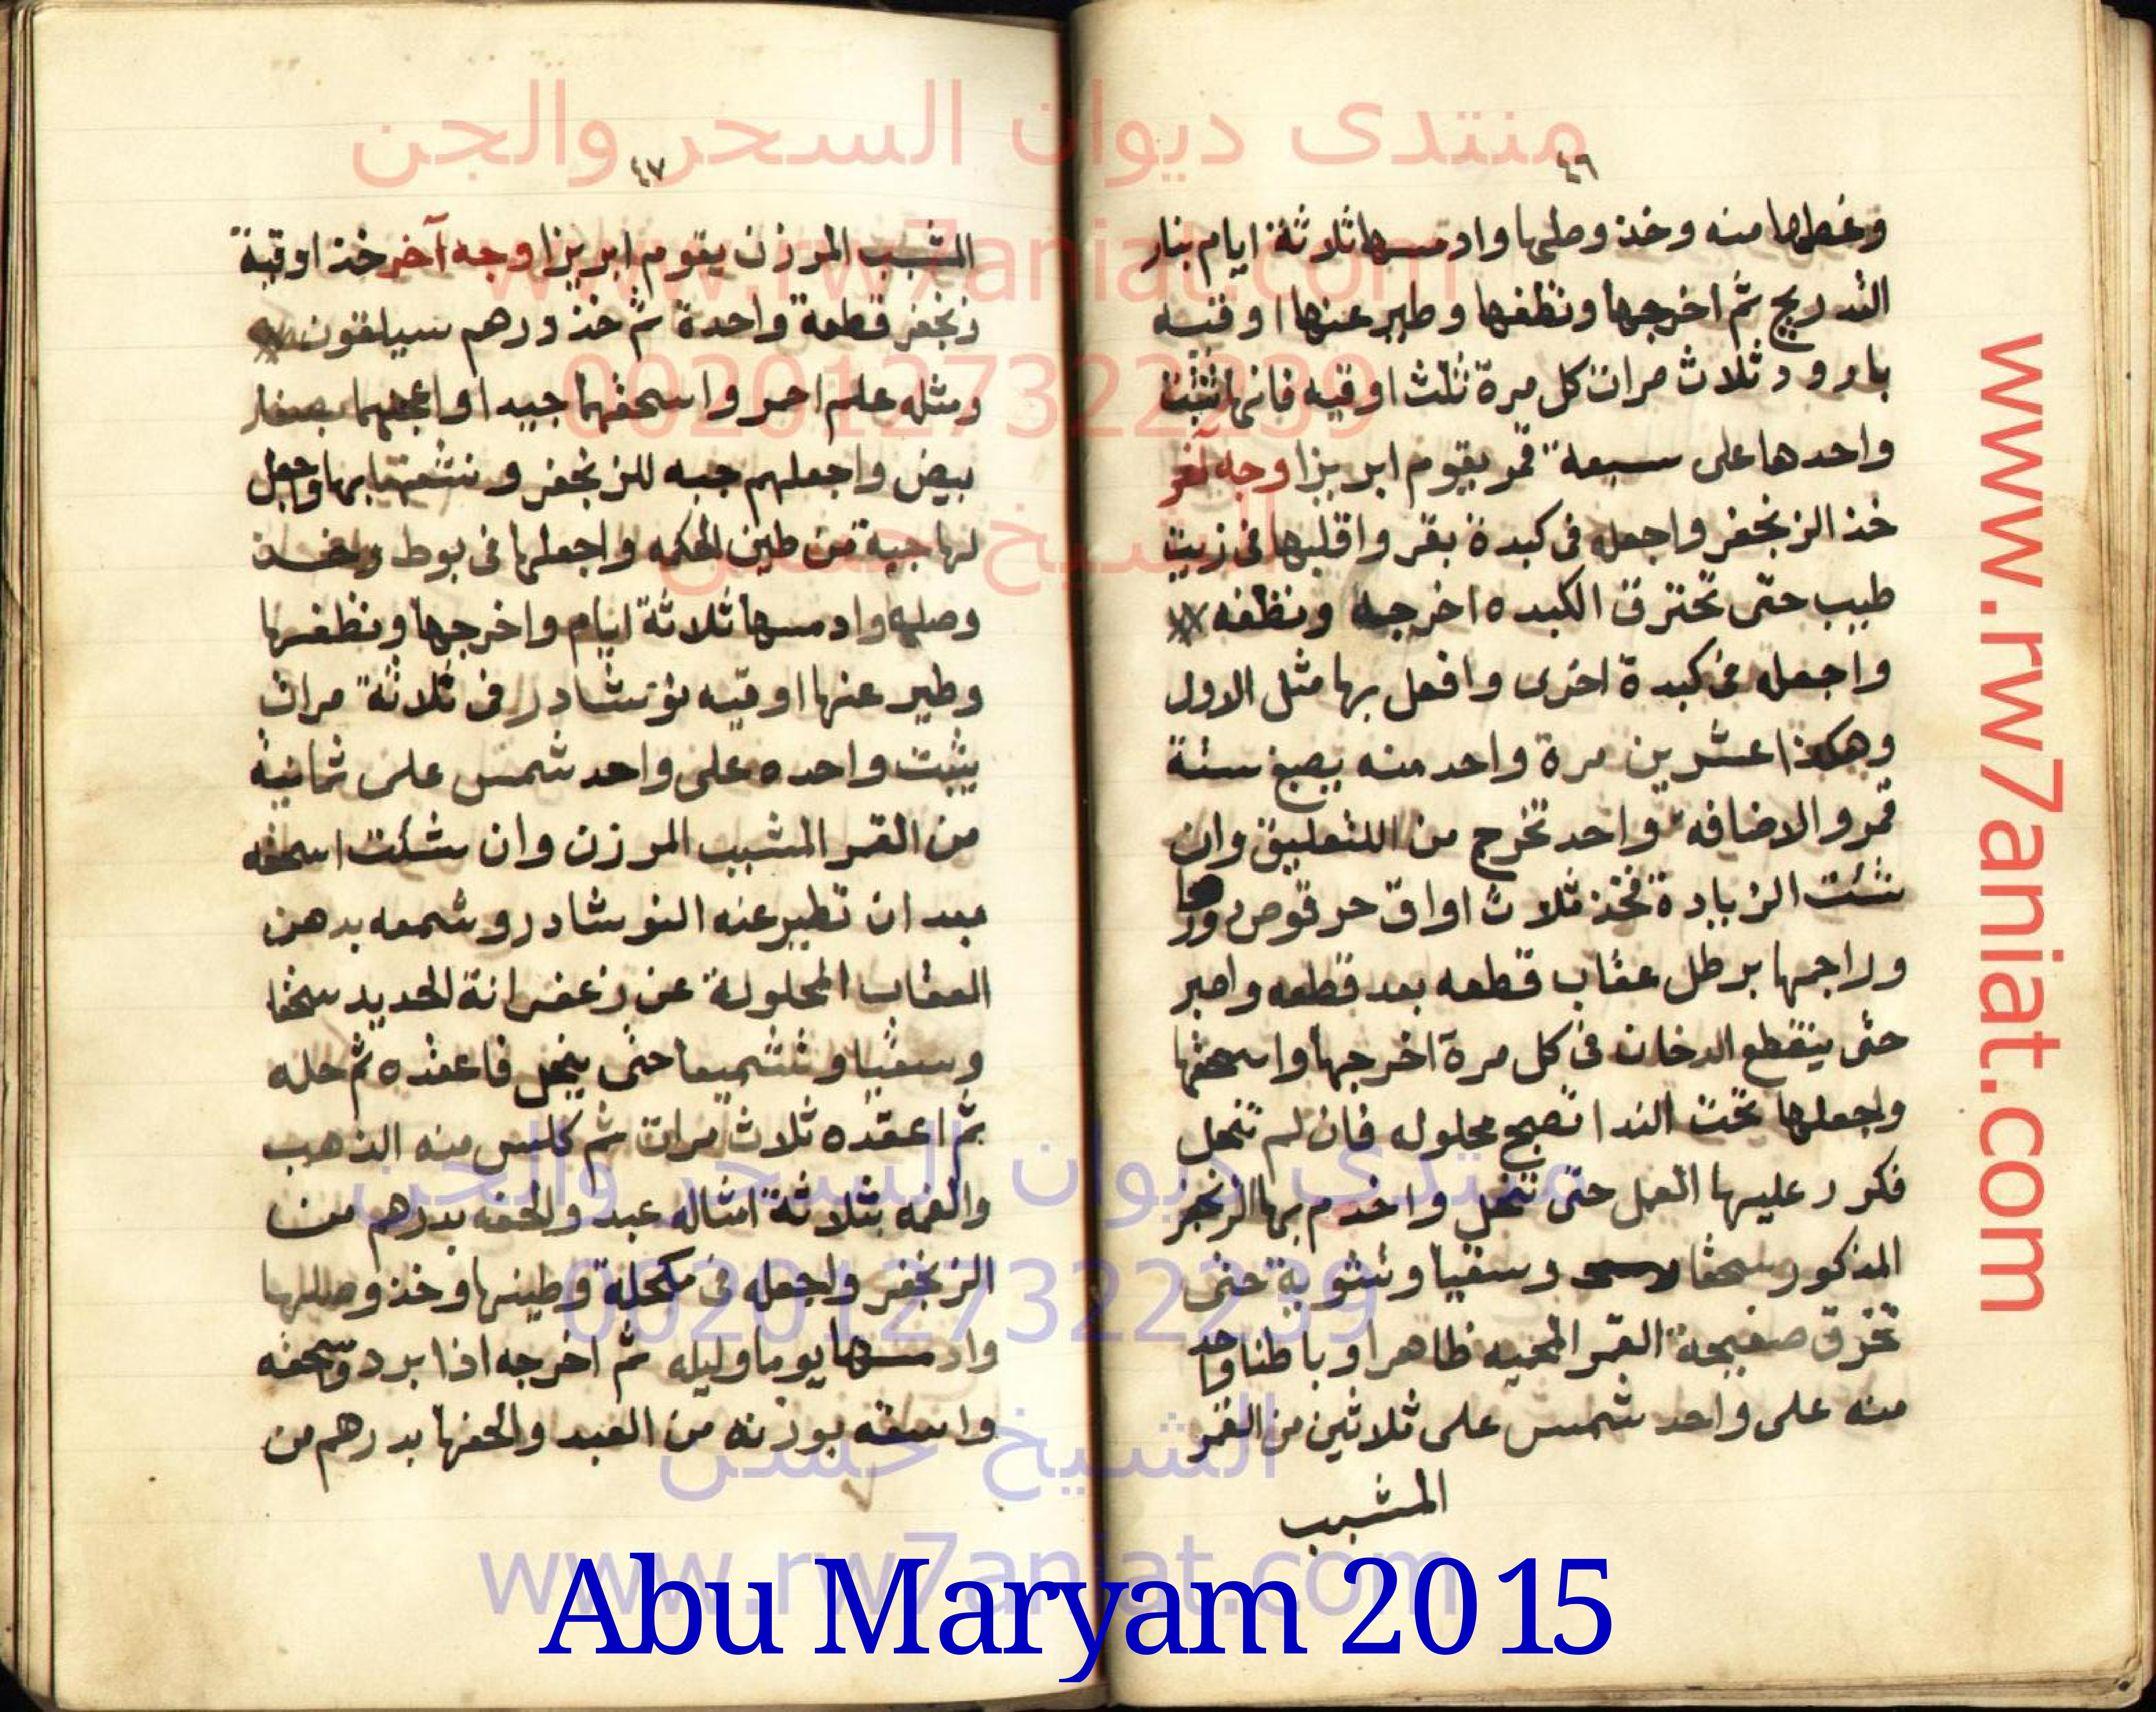 ٤٦
وغطاها منه وخذ وصلها وادمسها ثلاثة ايام بنار
التدريج ثم اخرجها ونظفها وطير عنها اوقيه
بارود ثلاث مرات كل مرة ثلث اوقيه فانها تثبت
واحدها على سبعة قمر يقوم ابريزا وجه آخر
خذ الزنجفر واجعله فى كبدة بقر واقلبها فى زيت
طيب حتى تحترق الكبده اخرجه ونظفه
واجعله فى كبدة اخرى وافعل بها مثل الاول
وهكذا عشرين مرة واحد منه يصبغ ستة
قمر والاضافه واحد تخرج من التعليق وان
شئت الزيادة فخذ ثلاث اواق حرقوص
وراجمها برطل عقاب قطعه بعد قطعه واصبر
حتى ينقطع الدخان فى كل مرة اخرجها واسحقها
واجعلها تحت الندا تصبح محلوله فان لم تنحل
فكرر عليها العمل حتى تنحل واخدم بها الزنجفر
المذكور سحقا وسقيا وتشوية حتى
تخرق صفيحة القمر المحميه ظاهرا وباطنا واحد
منه على واحد شمس على ثلاثين من القمر
المشبب
٤٧
المشبب المرزن يقوم ابريزا وجه آخر خذ اوقية
زنجفر قطعة واحدة ثم خذ درهم سيلقون
ومثله علم احمر واسحقهما جيدا واعجنهما بصفار
بيض واجعلهم جبه للزنجفر و بها واجعل
لها جبة من طين الحكمه واجعلها فى بوط وخذ
وصلها وادمسها ثلاثة ايام واخرجها ونظفها
وطير عنها اوقيه نوشادر فى ثلاثة مرات
يثبت واحده على واحد شمس على ثمانية
من القمر المشبب المرزن وان شئت اسحقه
بعد ان تطير عنه النوشادر وشمعه بدهن
العقاب المحلولة عن زعفرانة الحديد سحقا
وسقيا وتشميعا حتى ينحل فاعقده ثم حله
ثم اعقده ثلاث مرات ثم كلس منه الذهب
والغمه بثلاثة امثاله عبد والحقه بدرهم من
الزنجفر واجعله فى مكحلة وطينها وخذ وصلها
وادمسها يوما وليله ثم اخرجه اذا برد وسحقه
واسقه بوزنه من العبد والحقها بدرهم من
منتدى ديوان السحر والجن
www.rw7aniat.com
00201273222239
الشيخ حسن
منتدى ديوان السحر والجن
00201273222239
الشيخ حسن
www.rw7aniat.com
www.rw7aniat.com
Abu Maryam 2015